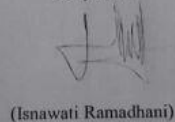 (Isnawati Ramadhani)